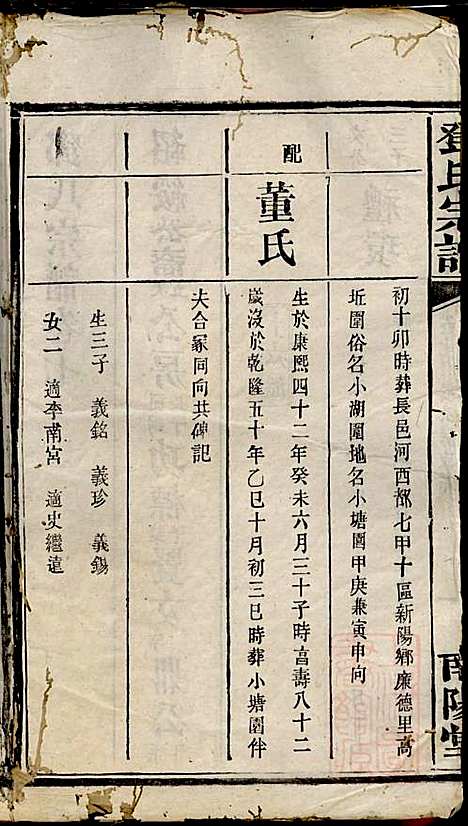 鄧氏宗譜
南陽堂
初十卯時葬長邑河西都七甲十區新陽鄉廉德里高
坵圍俗名小湖圍地名小塘園甲庚兼寅申向
配
董氏
生於康熙四十二年癸未六月三十子時享壽八十二
歲沒於乾隆五十年乙巳十月初三巳時葬小塘園伴
夫合冢同向共碑記
生三子 義銘 義珍 義錫
女二 適李南宮 適史繼遠